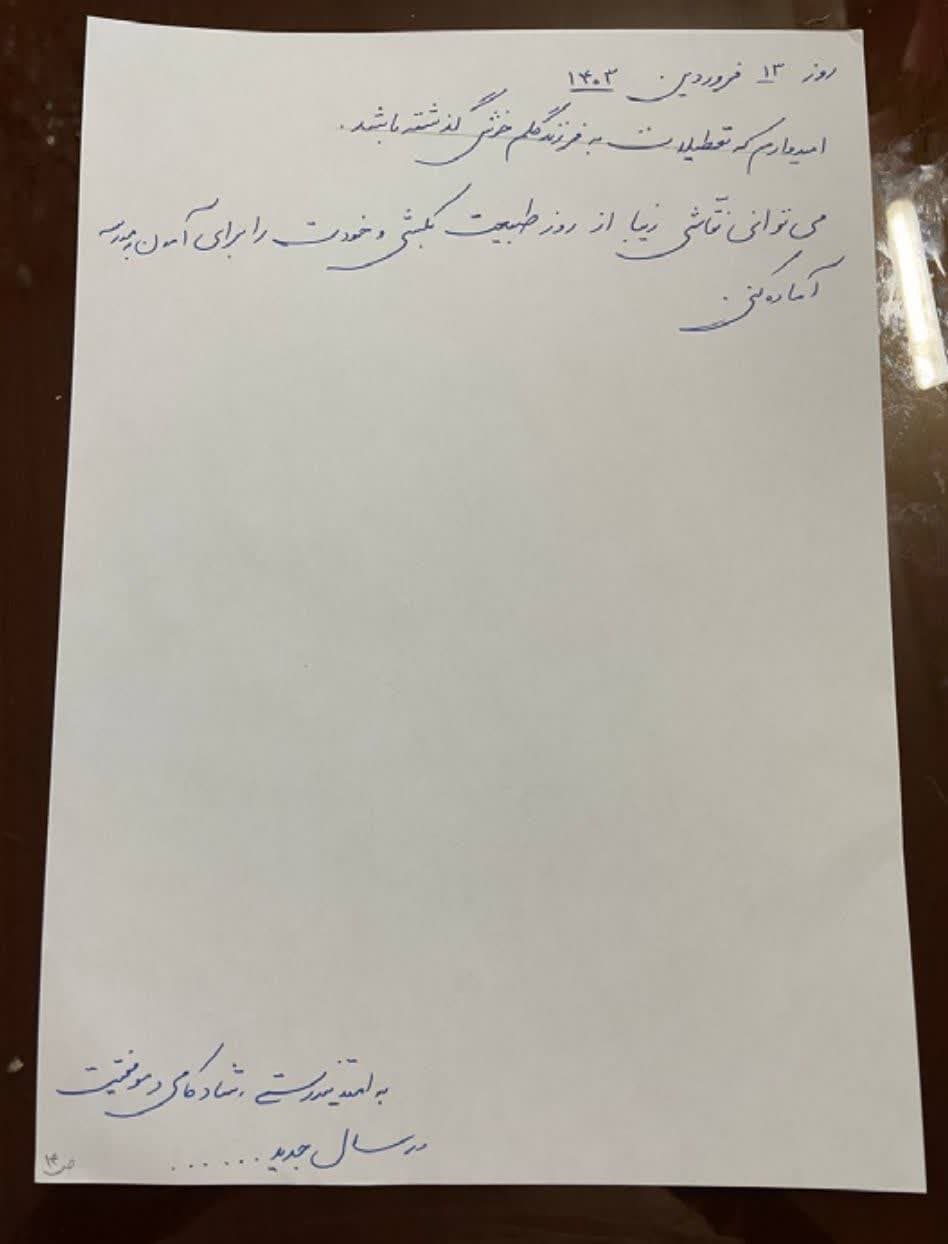 روز ۱۳ فروردین ۱۴۰۳
امیدوارم که تعطیلات به فرزند گلم خوش گذشته باشد.
می توانی نقّاشی زیبا از روز طبیعت بکشی و خودت را برای آمدن به مدرسه
آماده کنی.
به امید تندرستی، شادکامی و موفقیت
در سال جدید ......
ص ۱۴